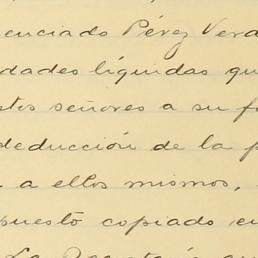 enciado Pérez Verd
dades líquidas qu
tos señores a su f
deducción de la p
a ellos mismos,
puesto copiado en
La Secretaría